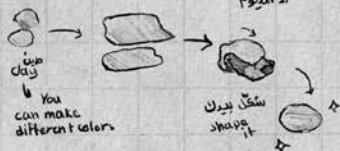 طين
clay
You
can make
different colors
شكّل بيدك
shape
it